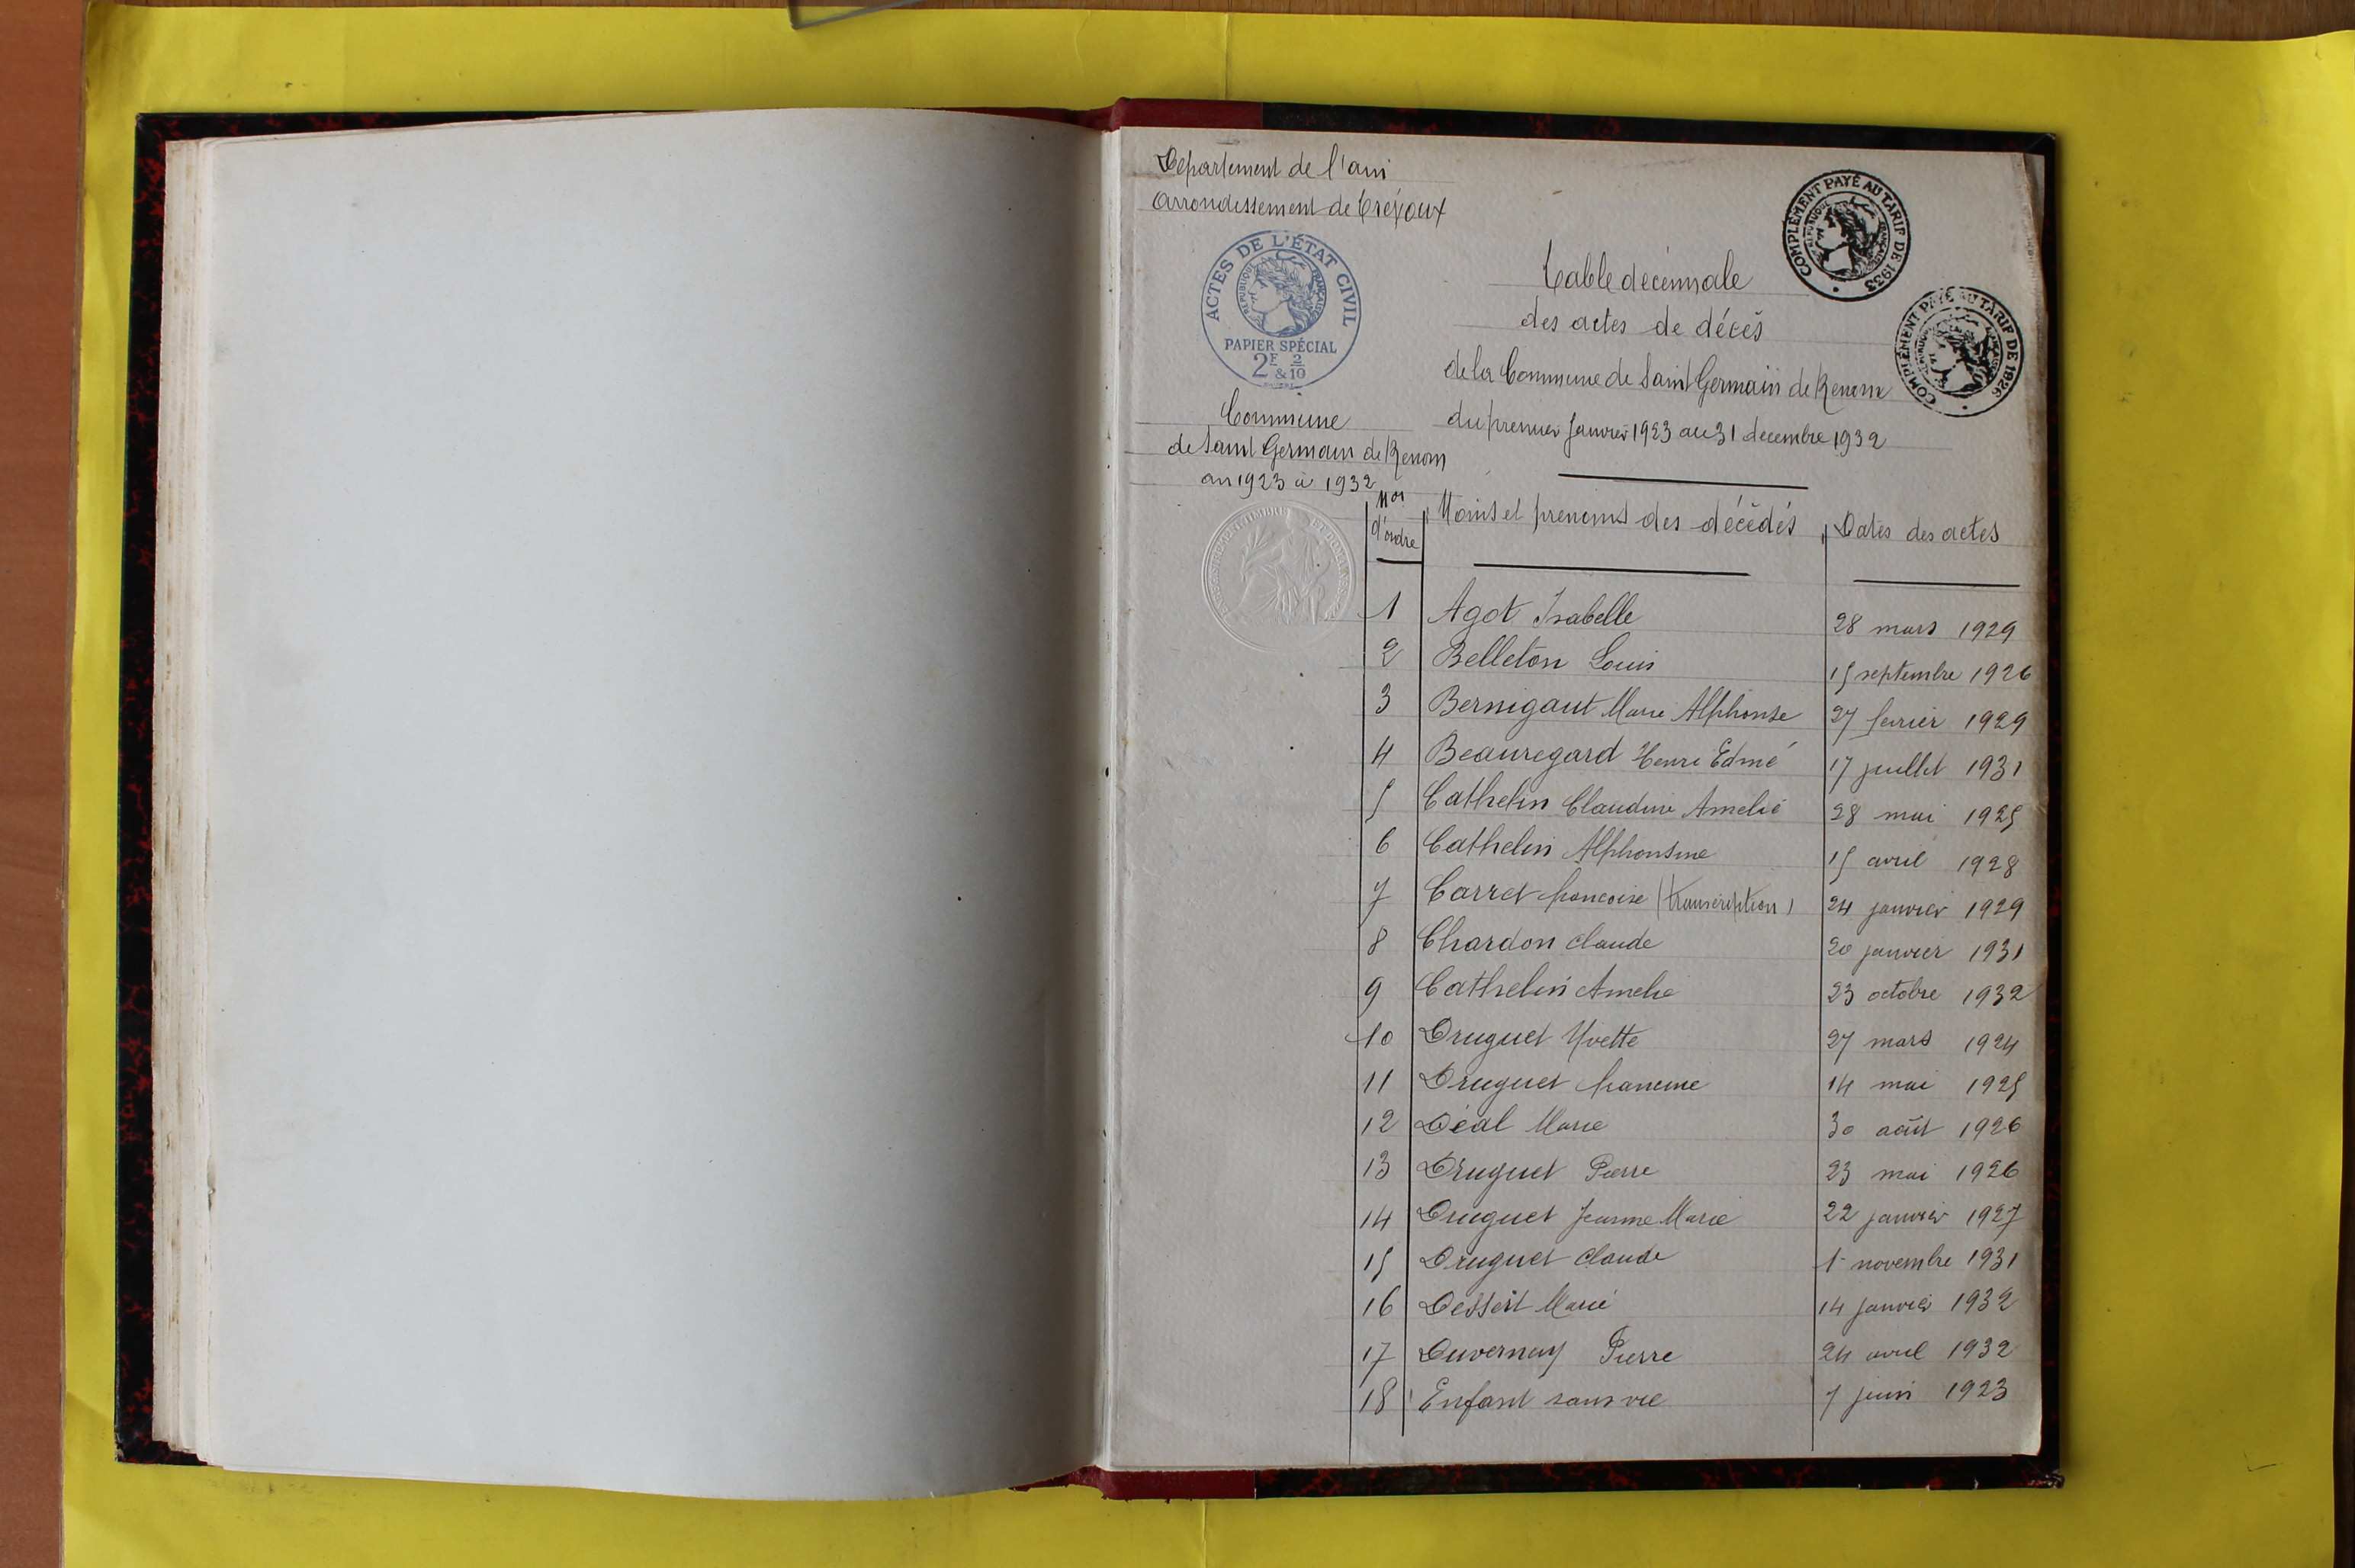 Département de l'ain
Arrondissement de Trévoux
ACTES DE L'ÉTAT CIVIL
RÉPUBLIQUE FRANÇAISE
PAPIER SPÉCIAL
2F & 2/10
COMPLÉMENT PAYÉ AU TARIF DE 1933
RÉPUBLIQUE FRANÇAISE
COMPLÉMENT PAYÉ AU TARIF DE 1926
RÉPUBLIQUE FRANÇAISE
Table décennale
des actes de décès
de la Commune de Saint Germain de Renom
du premier Janvier 1923 au 31 decembre 1932
Commune
de Saint Germain de Renom
an 1923 à 1932
Nos d'ordre Noms et prenoms des décédés Dates des actes
1 Agot Isabelle 28 mars 1929
2 Belleton Louis 15 septembre 1926
3 Bernigaut Marie Alphonse 27 fevrier 1929
4 Beauregard Henri Edmé 17 juillet 1931
5 Cathelin Claudine Amelie 28 mai 1925
6 Cathelin Alphonsine 15 avril 1928
7 Carret francoise (transcription) 24 janvier 1929
8 Chardon Claude 20 janvier 1931
9 Cathelin Amelie 23 octobre 1932
10 Druguet Yvette 27 mars 1924
11 Druguet francine 14 mai 1925
12 Déal Marie 30 août 1926
13 Druguet Pierre 23 mai 1926
14 Druguet Jeanne Marie 22 janvier 1927
15 Druguet Claude 1 novembre 1931
16 Dessert Marie 14 janvier 1932
17 Duvernay Pierre 24 avril 1932
18 Enfant sans vie 7 juin 1923